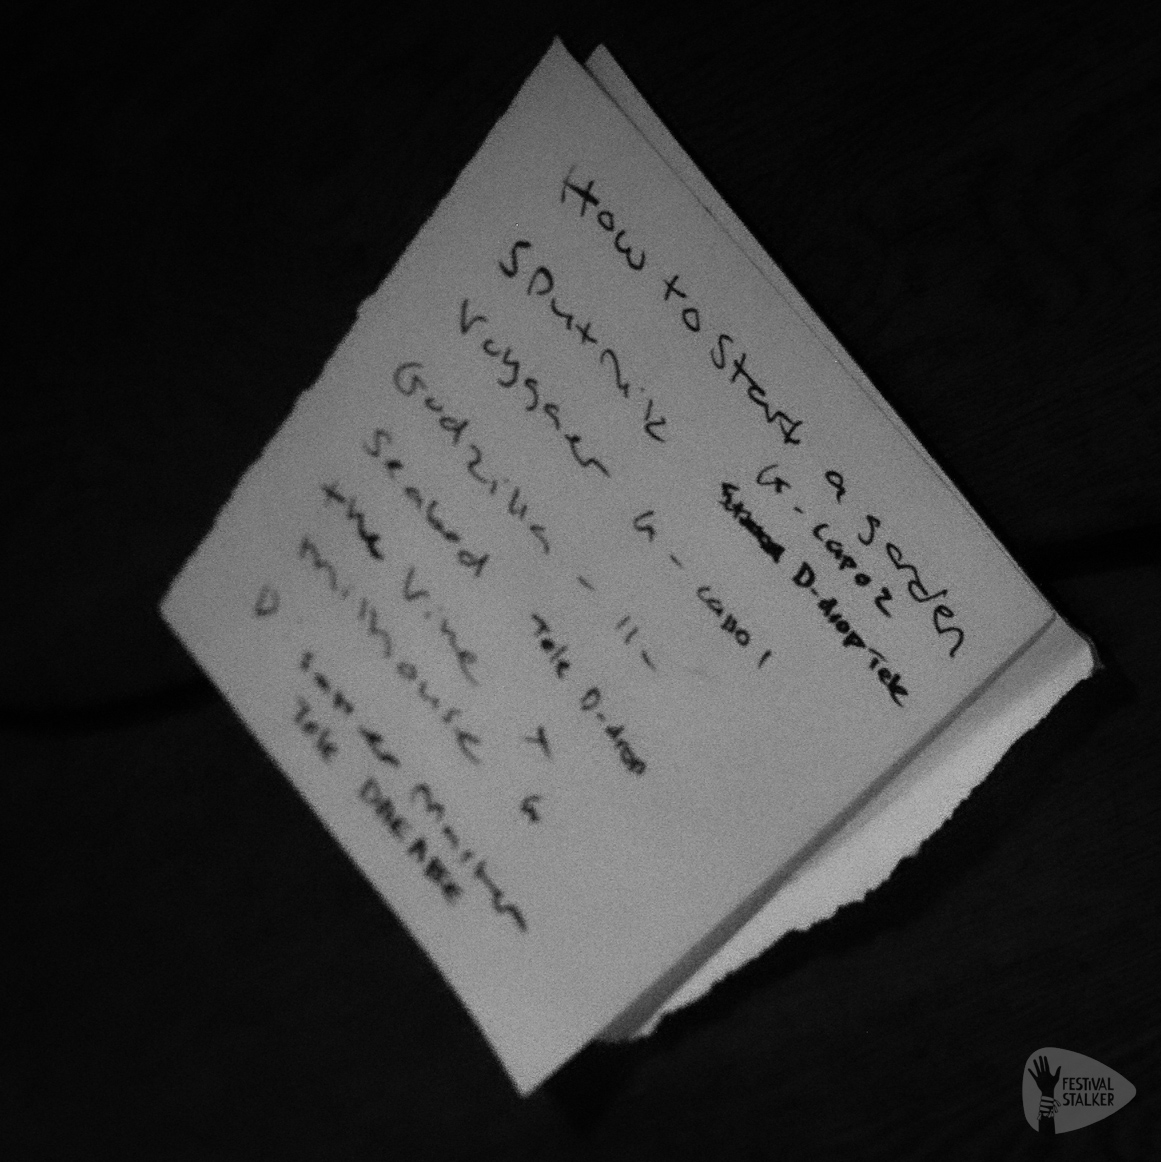 How to start a garden
Sputnik G - capo 2
D-drop Tele
Voyager G - capo 1
Godzilla - 11 -
Seabed Tele D-drop
the Vine T
Milhouse G
D
Tele DBEABE
FESTIVAL
STALKER